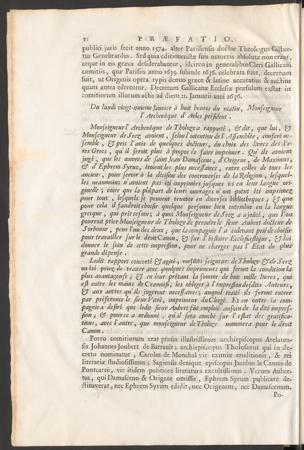 vj PRÆFATIO.
publici juris fecit anno 1574. alter Parisiensis doctor Theologus Gilber-
tus Genebrardus. Sed quia editiones istæ suis numeris absolutæ non erant,
atque in eis græca desiderabantur, idcirco in generalibus Cleri Gallicani
comitiis, quæ Parisiis anno 1635. subinde 1636. celebrata sunt, decretum
fuit, ut Origenis opera typis denuo græcè & latinè accuratius & auctius
quam antea ederentur. Decretum Gallicanæ Ecclesiæ præsulum exstat in
comitiorum illorum actis ad diem 21. Januarii anni 1636.
Du lundi vingt-uniéme Janvier à huit heures du matin, Monseigneur
l'Archevêque d'Arles président.
Monseigneur l'Archevêque de Tholoze a rapporté, & dit, que lui, &
Monseigneur de Seez avoient, selon l'intention de l'Assemblée, conferé en-
semble, & pris l'avis de quelques docteurs, du choix des livres des Pe-
res Grecs, qu'il seroit plus à propos de faire imprimer. Qu'ils avoient
jugé, que les œuvres de saint Jean Damascene, d'Origene, de Maximus,
& d'Ephrem Syrus, étoient les plus necessaires, entre celles de tous les
anciens, pour servir à la décision des controverses de la Religion, lesquel-
les neanmoins n'avoient pas été imprimées jusques ici en leur langue ori-
ginelle; outre que la plûpart de leurs ouvrages n'ont point été imprimez
pour tout, lesquels se peuvent trouver en diverses bibliotheques; & que
pour cela il faudroit choisir quelque personne bien entendue en la langue
grecque, qui prît ce soin; à quoi Monseigneur de Seez a ajoûté, que l'on
pourroit prier Monseigneur de Tholoze de prendre le sieur Aubert docteur de
Sorbonne, pour l'un des deux, que la compagnie l'a ci-devant prié de choisir
pour travailler sur le droit Canon, & sur l'histoire Ecclesiastique, & lui
donner le soin de cette impression, pour ne charger pas l'Etat de plus
grande dépense.
Ledit rapport concerté & agité, mesdits seigneurs de Tholoze & de Seez
ont été priez de traiter avec quelques imprimeurs qui feront la condition la
plus avantageuse; & en leur prêtant la somme de huit mille livres, qui
est entre les mains de Cramoisi, les obliger à l'impression desdits Auteurs,
& aux autres qu'ils jugeront necessaires; auquel traité ils feront entrer
par préference le sieur Vitré, imprimeur du Clergé. Et en outre la com-
pagnie a desiré que ledit sieur Aubert fût employé au soin de la dite impres-
sion, & pourvu à ordonné; qu'il sera couché sur l'estat des gratifica-
tions, avec l'autre, que monseigneur de Tholoze nommera pour le droit
Canon.
Porro comitiorum erat præses illustrissimus archiepiscopus Arelaten-
sis Johannes Joubert de Barrault: archiepiscopus Tholosanus qui in de-
creto nominatur, Carolus de Monchal vir eximiæ eruditionis, & rei
literariæ studiosissimus: Sagiensis denique episcopus Jacobus le Camus de
Pontcarré, vir itidem politiore literatura excultissimus. Verum Auber-
tus, qui Damasceno & Origene omissis, Ephrem Syrum publicare de-
stinaverat, nec Ephrem Syrum edidit, nec Origenem, nec Damascenum.
Po-